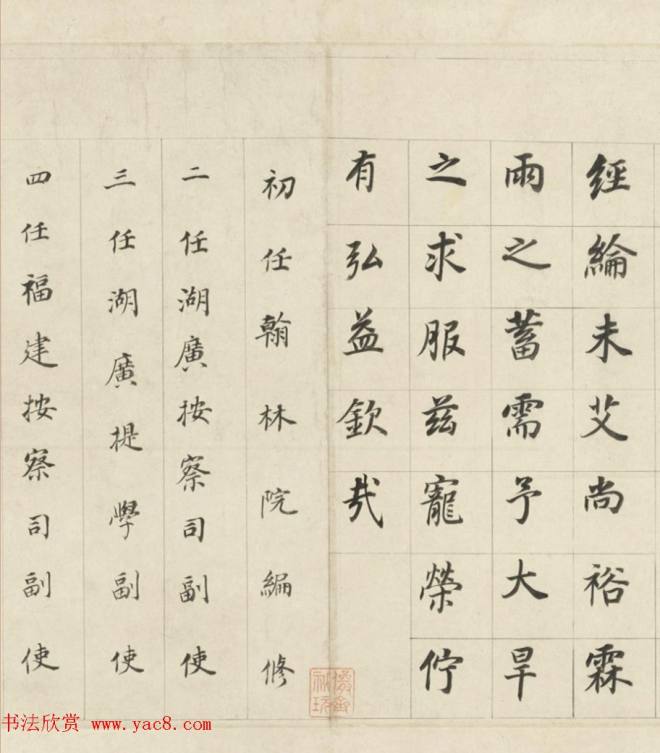 經綸未艾尚裕霖
雨之蓄需予大旱
之求服茲寵榮佇
有弘益欽哉
初任翰林院編修
二任湖廣按察司副使
三任湖廣提學副使
四任福建按察司副使
书法欣赏 www.yac8.com